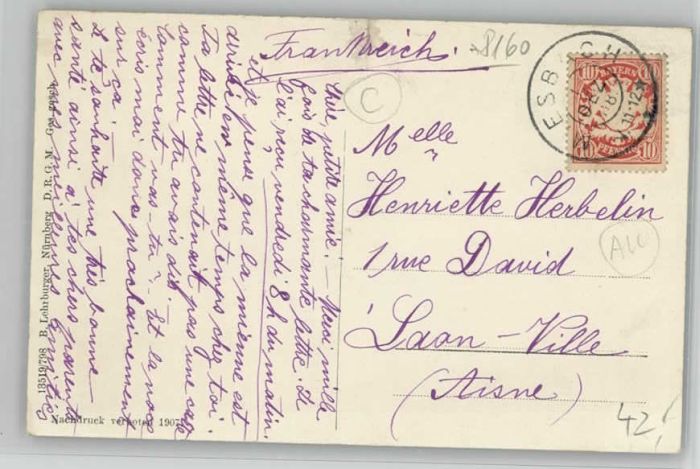 Frankreich.
8160
C
MIESBACH
11-12
BAYERN
10
10
10 PFENNIG 10
Melle
Henriette Herbelin
1 rue David
à Laon-Ville
(Aisne)
ALU
42,-
Chère petite amie! — Merci mille
fois de ta charmante lettre. Je
l'ai reçu vendredi 8 h du matin.
et je pense que la mienne est
arrivée en même temps chez toi.
Ta lettre ne contenait pas une
comme tu avais dit. —
Comment vas-tu? Et la
écris moi donc prochainement
sur ça! —
Je te souhaite une très bonne
santé ainsi à tes chers parents
avec mes meilleures amitiés
13519/798 B. Lehrburger, Nürnberg D. R. G. M. Ges. gesch.
Nachdruck verboten 1907